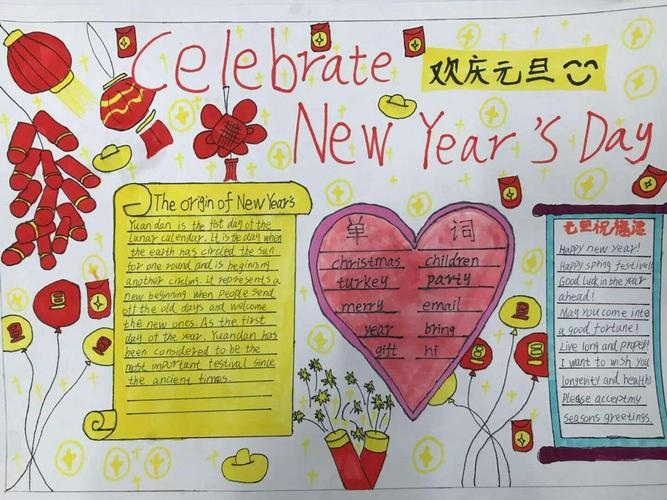 Celebrate
欢庆元旦
New Year's Day
The origin of New Year's
Yuandan is the fist day of the
Lunar calendar. It is the day when
the earth has circled the sun
for one round and is beginning
another circling. It represents a
new beginning when people send
off the old days and welcome
the new ones. As the first
day of the year. Yuandan has
been considered to be the
most important festival since
the ancient times.
单词
christmas children
turkey party
merry email
year bring
gift hi
元旦祝福语
Happy new year!
Happy spring festival!
Good luck in the year
ahead!
May you come into
a good fortune!
Live long and proper!
I want to wish you
longevity and health!
Please accept my
seasons greetings.